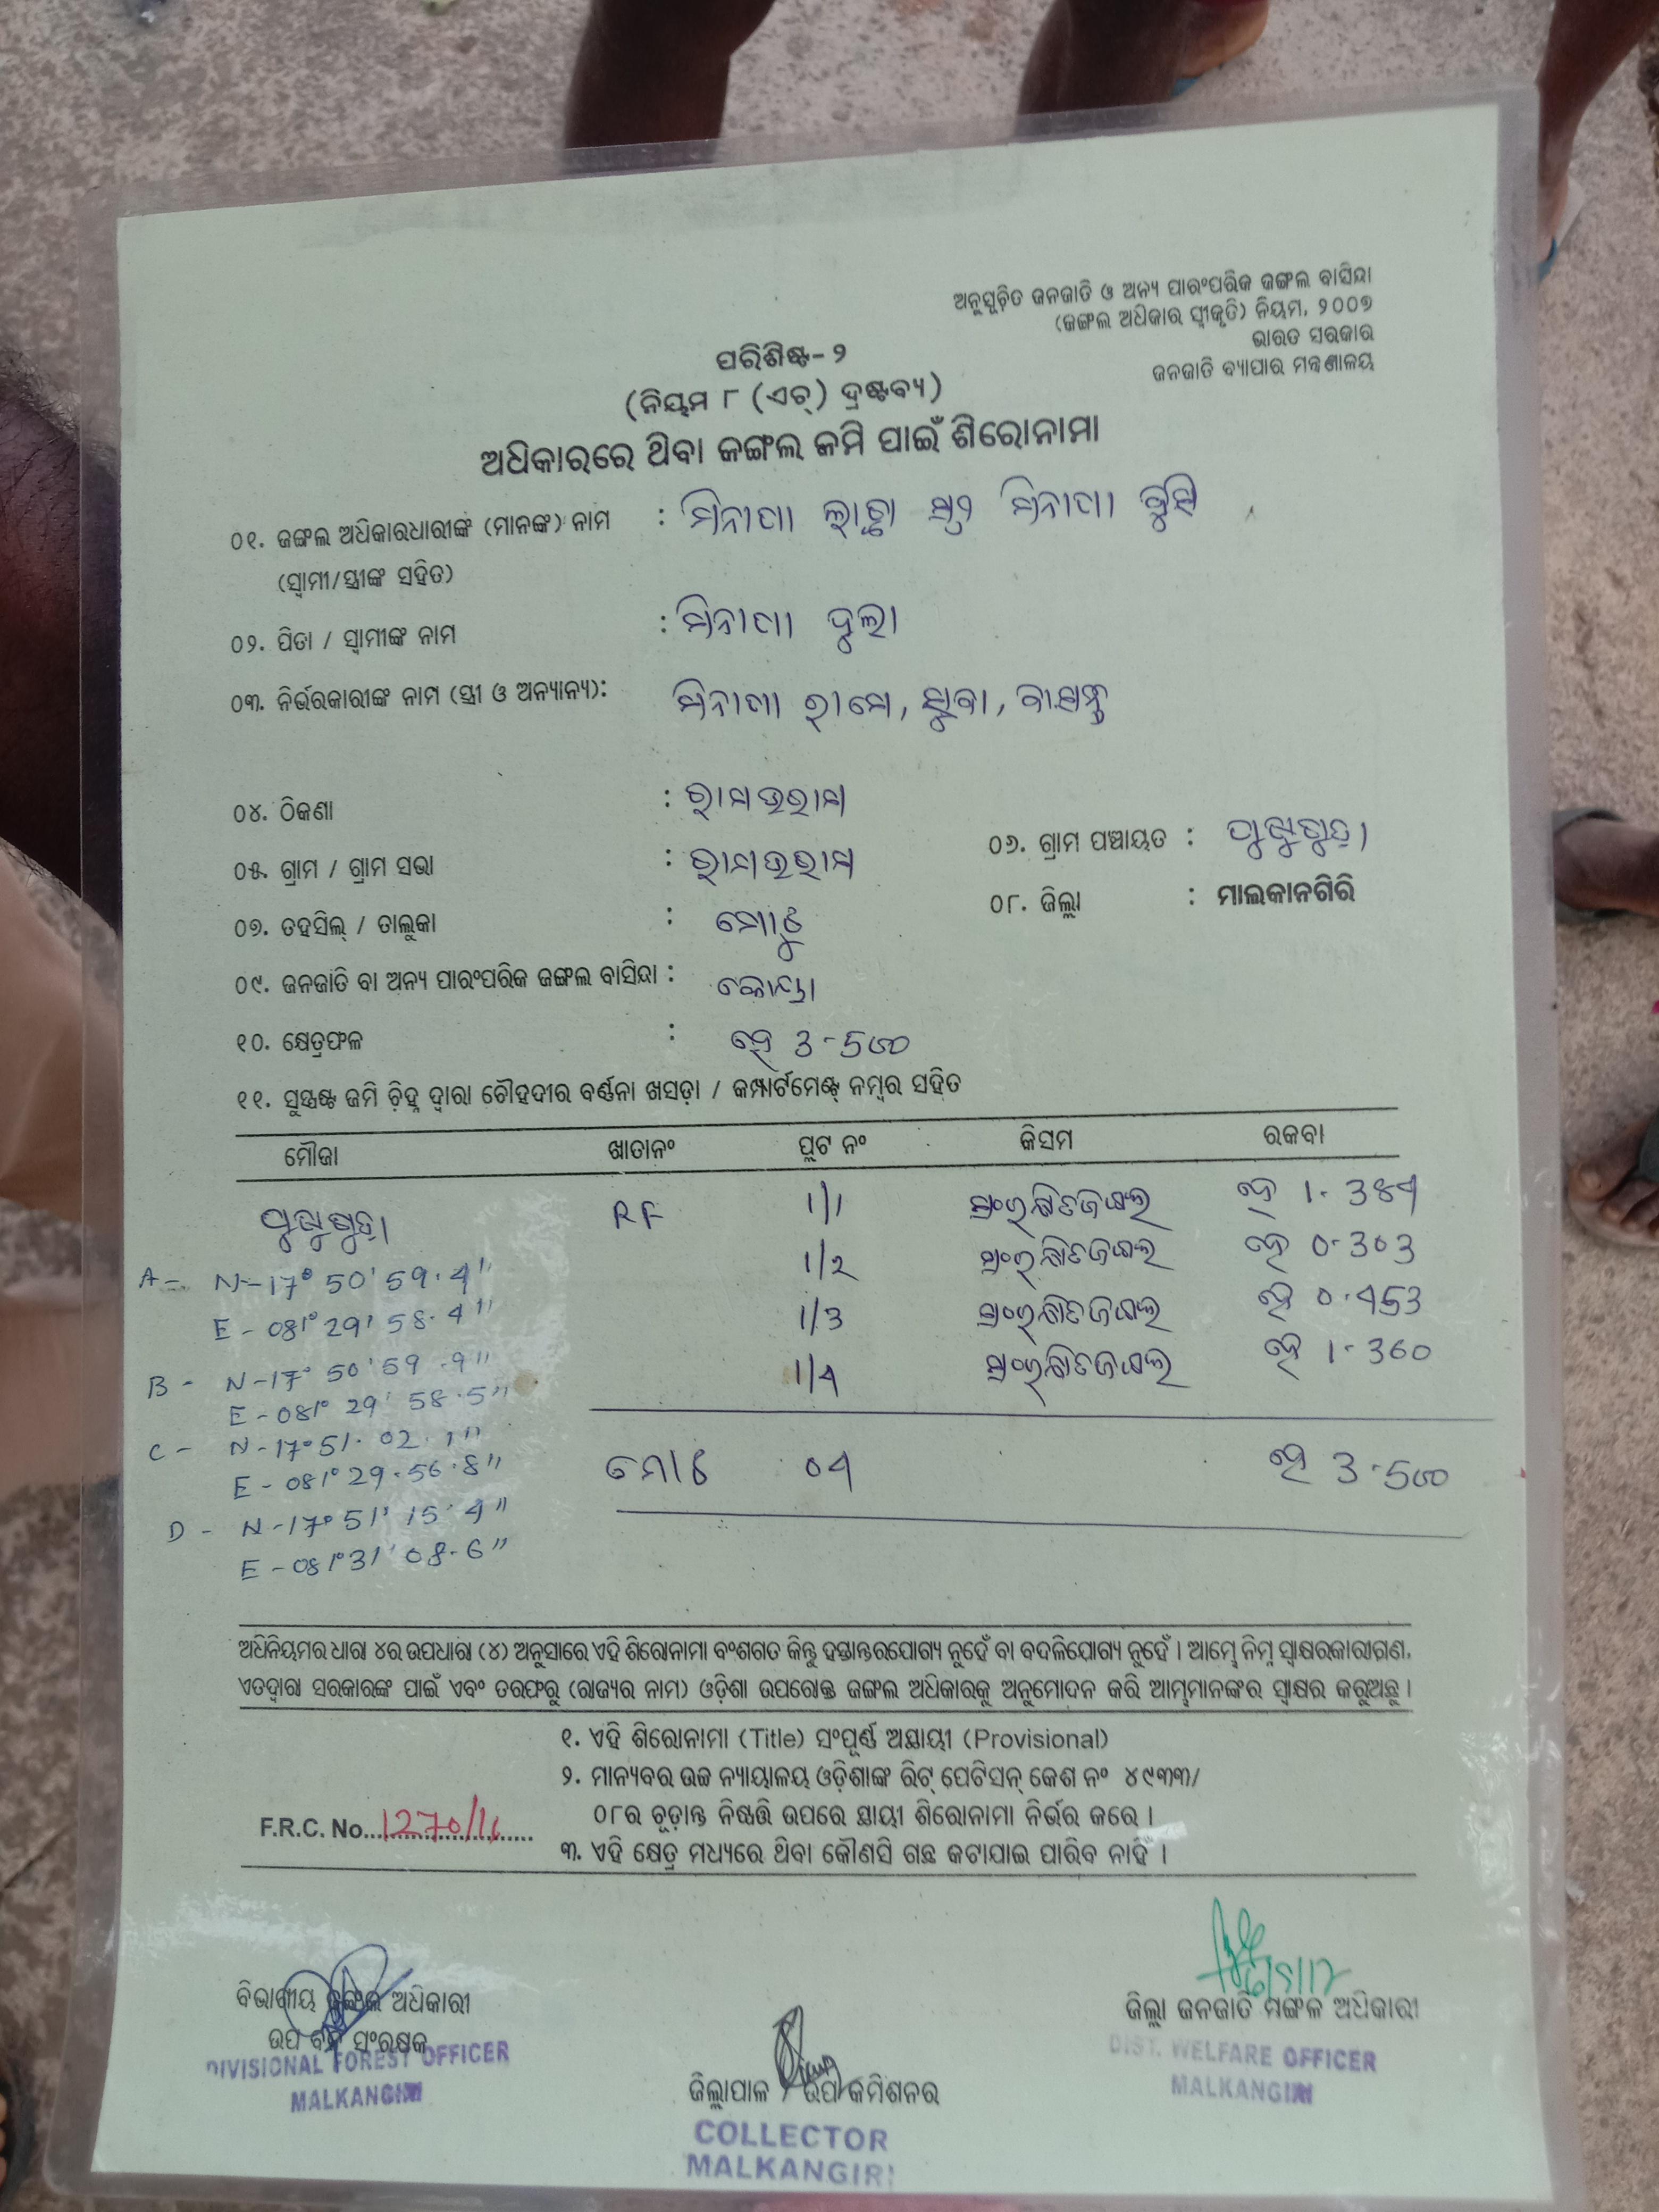 ଅନୁସୂଚିତ ଜନଜାତି ଓ ଅନ୍ୟ ପାରଂପରିକ ଜଙ୍ଗଲ ବାସିନ୍ଦା
(ଜଙ୍ଗଲ ଅଧିକାର ସ୍ୱୀକୃତି) ନିୟମ, ୨୦୦୭
ଭାରତ ସରକାର
ଜନଜାତି ବ୍ୟାପାର ମନ୍ତ୍ରଣାଳୟ
ପରିଶିଷ୍ଟ- ୨
(ନିୟମ ୮ (ଏଚ୍) ଦ୍ରଷ୍ଟବ୍ୟ)
ଅଧିକାରରେ ଥିବା ଜଙ୍ଗଲ ଜମି ପାଇଁ ଶିରୋନାମା
୦୧. ଜଙ୍ଗଲ ଅଧିକାରଧାରୀଙ୍କ (ମାନଙ୍କ) ନାମ :
(ସ୍ୱାମୀ/ସ୍ତ୍ରୀଙ୍କ ସହିତ)
୦୨. ପିତା / ସ୍ୱାମୀଙ୍କ ନାମ : ଦୁଲା
୦୩. ନିର୍ଭରକାରୀଙ୍କ ନାମ (ସ୍ତ୍ରୀ ଓ ଅନ୍ୟାନ୍ୟ):
୦୪. ଠିକଣା :
୦୫. ଗ୍ରାମ / ଗ୍ରାମ ସଭା : ୦୬. ଗ୍ରାମ ପଞ୍ଚାୟତ :
୦୭. ତହସିଲ୍ / ତାଲୁକା : ମୋଟୁ ୦୮. ଜିଲ୍ଲା : ମାଲକାନଗିରି
୦୯. ଜନଜାତି ବା ଅନ୍ୟ ପାରଂପରିକ ଜଙ୍ଗଲ ବାସିନ୍ଦା : କୋୟା
୧୦. କ୍ଷେତ୍ରଫଳ : ହେ 3-500
୧୧. ସୁସ୍ପଷ୍ଟ ଜମି ଚିହ୍ନ ଦ୍ୱାରା ଚୌହଦୀର ବର୍ଣ୍ଣନା ଖସଡ଼ା / କମ୍ପାର୍ଟମେଣ୍ଟ୍ ନମ୍ବର ସହିତ
ମୌଜା ଖାତାନଂ ପ୍ଲଟ ନଂ କିସମ ରକବା
RF 1/1 ସଂରକ୍ଷିତଜଙ୍ଗଲ ହେ 1.384
1/2 ସଂରକ୍ଷିତଜଙ୍ଗଲ ହେ 0.303
1/3 ସଂରକ୍ଷିତଜଙ୍ଗଲ ହେ 0.453
1/4 ସଂରକ୍ଷିତଜଙ୍ଗଲ ହେ 1.360
A - N-17° 50' 59.4"
E - 081° 29' 58.4"
B - N-17° 50' 59.9"
E - 081° 29' 58.5"
C - N-17° 51. 02.1"
E - 081° 29. 56.8"
D - N-17° 51' 15.4"
E - 081° 31' 08.6"
ମୋଟ 04 ହେ 3-500
ଅଧିନିୟମର ଧାରା ୪ର ଉପଧାରା (୪) ଅନୁସାରେ ଏହି ଶିରୋନାମା ବଂଶଗତ କିନ୍ତୁ ହସ୍ତାନ୍ତରଯୋଗ୍ୟ ନୁହେଁ ବା ବଦଳିଯୋଗ୍ୟ ନୁହେଁ । ଆମ୍ଭେ ନିମ୍ନ ସ୍ୱାକ୍ଷରକାରୀଗଣ,
ଏତଦ୍ଦ୍ୱାରା ସରକାରଙ୍କ ପାଇଁ ଏବଂ ତରଫରୁ (ରାଜ୍ୟର ନାମ) ଓଡ଼ିଶା ଉପରୋକ୍ତ ଜଙ୍ଗଲ ଅଧିକାରକୁ ଅନୁମୋଦନ କରି ଆମ୍ଭମାନଙ୍କର ସ୍ୱାକ୍ଷର କରୁଅଛୁ ।
୧. ଏହି ଶିରୋନାମା (Title) ସଂପୂର୍ଣ୍ଣ ଅସ୍ଥାୟୀ (Provisional)
୨. ମାନ୍ୟବର ଉଚ୍ଚ ନ୍ୟାୟାଳୟ ଓଡ଼ିଶାଙ୍କ ରିଟ୍ ପେଟିସନ୍ କେଶ ନଂ ୪୯୩୩/
୦୮ର ଚୂଡ଼ାନ୍ତ ନିଷ୍ପତ୍ତି ଉପରେ ସ୍ଥାୟୀ ଶିରୋନାମା ନିର୍ଭର କରେ ।
F.R.C. No. 1270/11
୩. ଏହି କ୍ଷେତ୍ର ମଧ୍ୟରେ ଥିବା କୌଣସି ଗଛ କଟାଯାଇ ପାରିବ ନାହିଁ ।
ବିଭାଗୀୟ ଜଙ୍ଗଲ ଅଧିକାରୀ
ଉପ ବନ ସଂରକ୍ଷକ
DIVISIONAL FOREST OFFICER
MALKANGIRI
ଜିଲ୍ଲାପାଳ / ଉପ କମିଶନର
COLLECTOR
MALKANGIRI
ଜିଲ୍ଲା ଜନଜାତି ମଙ୍ଗଳ ଅଧିକାରୀ
DIST. WELFARE OFFICER
MALKANGIRI